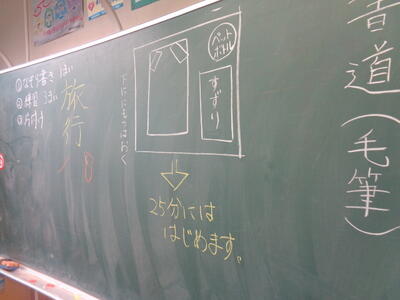 書道(毛筆)
ペット
ボトル
すずり
25分には
はじめます。
下ににもつはおく
旅行
18
①なぞり書き 1まい
②練習 3まい
③片付け